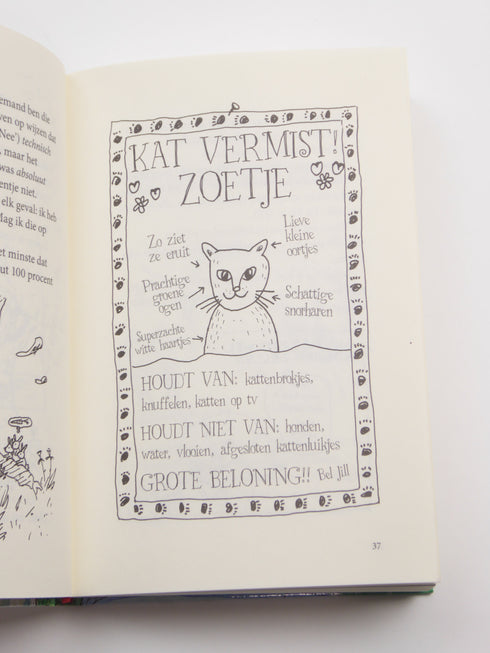 emand ben die
ven op wijzen dat
Nee') technisch
, maar het
was absoluut
entje niet.
elk geval: ik heb
Mag ik die op
et minste dat
ut 100 procent
KAT VERMIST!
ZOETJE
Zo ziet
ze eruit
Lieve
kleine
oortjes
Prachtige
groene
ogen
Schattige
snorharen
Superzachte
witte haartjes
HOUDT VAN: kattenbrokjes,
knuffelen, katten op tv
HOUDT NIET VAN: honden,
water, vlooien, afgesloten kattenluikjes
GROTE BELONING!! Bel Jill
37